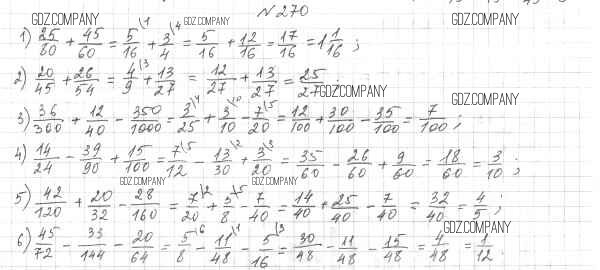 № 270
GDZ.COMPANY GDZ.COMPANY GDZ.COMPANY
1) 25/80 + 45/60 = 5/16 \1 + 3/4 \4 = 5/16 + 12/16 = 17/16 = 1 1/16 ;
2) 20/45 + 26/54 = 4/9 \3 + 13/27 = 12/27 + 13/27 = 25/27 ;
GDZ.COMPANY GDZ.COMPANY
3) 36/300 + 12/40 - 350/1000 = 3/25 \4 + 3/10 \10 - 7/20 \5 = 12/100 + 30/100 - 35/100 = 7/100 ;
4) 14/24 - 39/90 + 15/100 = 7/12 \5 - 13/30 \2 + 3/20 \3 = 35/60 - 26/60 + 9/60 = 18/60 = 3/10 ;
GDZ.COMPANY GDZ.COMPANY
5) 42/120 + 20/32 - 28/160 = 7/20 \2 + 5/8 \5 - 7/40 = 14/40 + 25/40 - 7/40 = 32/40 = 4/5 ;
GDZ.COMPANY
6) 45/72 - 33/144 - 20/64 = 5/8 \6 - 11/48 \1 - 5/16 \3 = 30/48 - 11/48 - 15/48 = 4/48 = 1/12 .